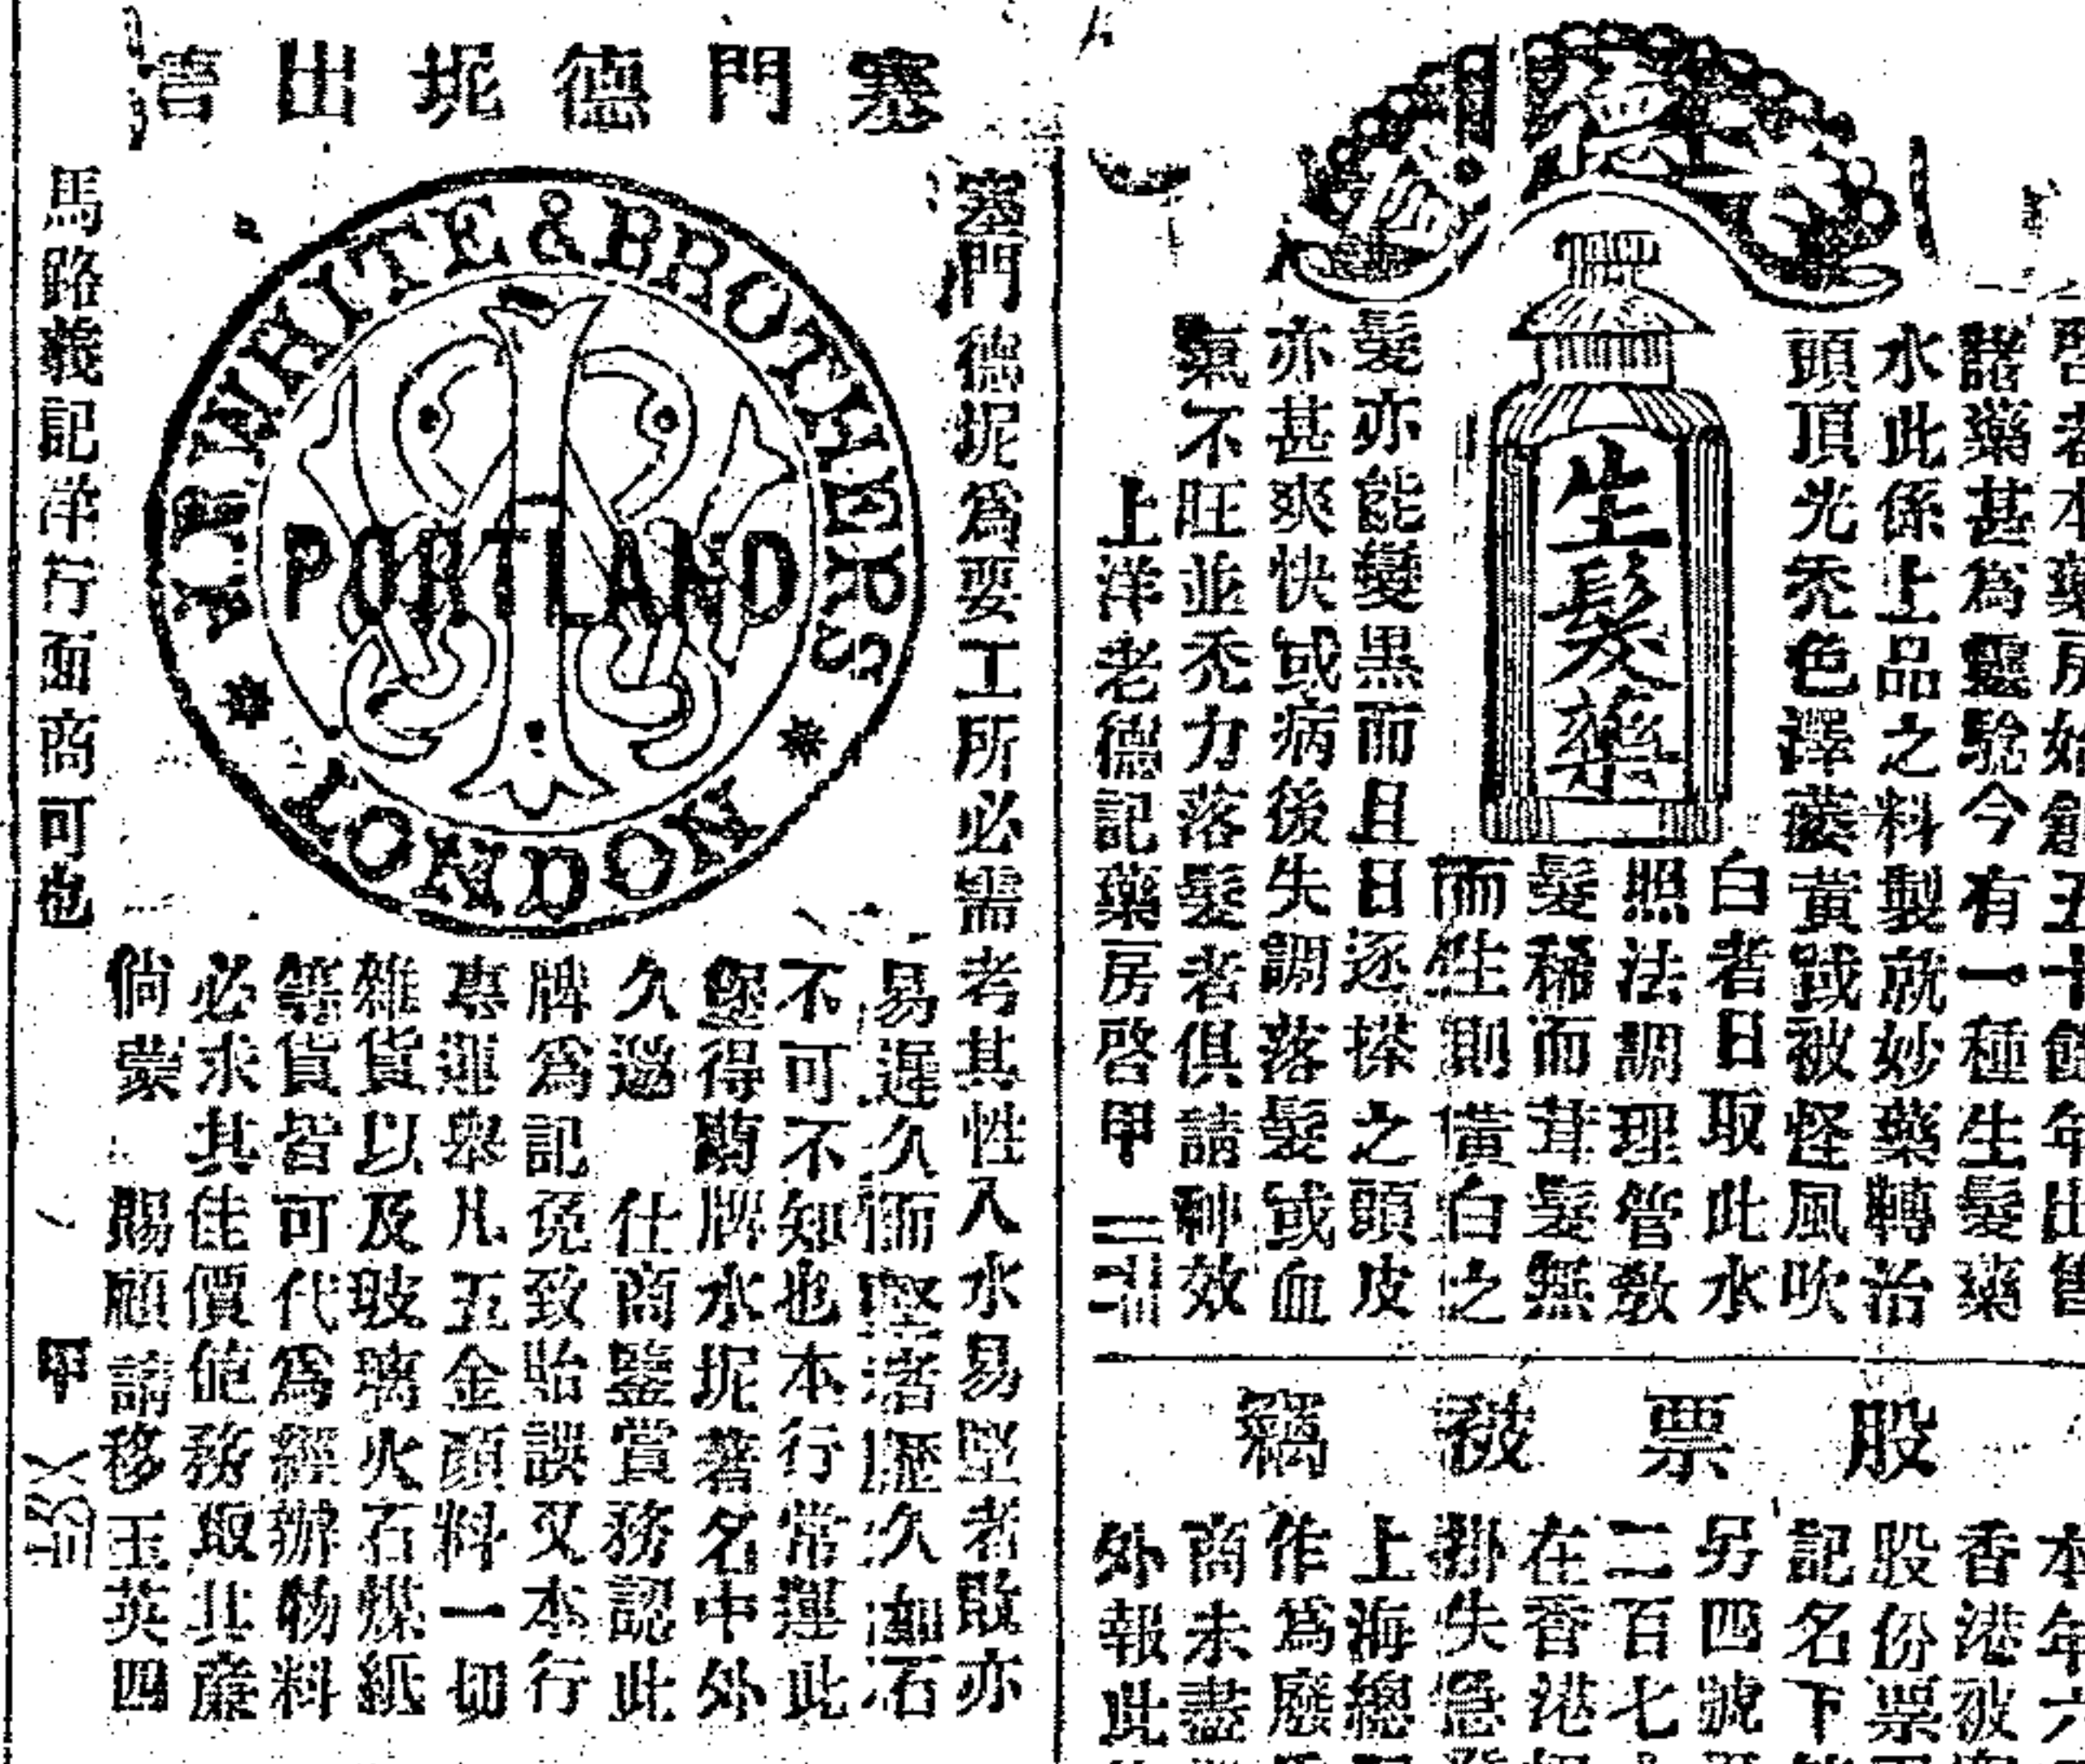 老德記
生髮藥
啓者本藥房始創五十餘年出售
諸藥甚為靈驗今有一種生髮藥
水此係上品之料製就妙藥轉治
頭頂光禿色澤萎黃或被怪風吹
白者日取此水
照法調理管教
髮稀而茸髮無
而生則黃白之
髮亦能變黑而且日逐搽之頭皮
亦甚爽快或病後失調落髮或血
氣不旺並禿力落髮者俱請神效
上洋老德記藥房啓甲
股票被竊
本年六
香港被
股份票
記名下
另四號
二百七
在香港
掛失急
上海總
作為廢
商未盡
外報此
塞門德坭出售
J.B.WHITE & BROTHERS
PORTLAND
LONDON
塞門德坭爲要工所必需考其性入水易堅者敗亦
易遲久而堅者歷久如石
不可不知也本行常運此
堡得蘭牌水坭著名中外
久邀 仕商鑒賞務認此
牌爲記免致貽誤又本行
專運舉凡五金顔料一切
雜貨以及玻璃火石煤紙
等貨皆可代爲經辦物料
必求其佳價値務取其廉
倘蒙 賜顧請移玉英四
馬路義記洋行面商可也
甲